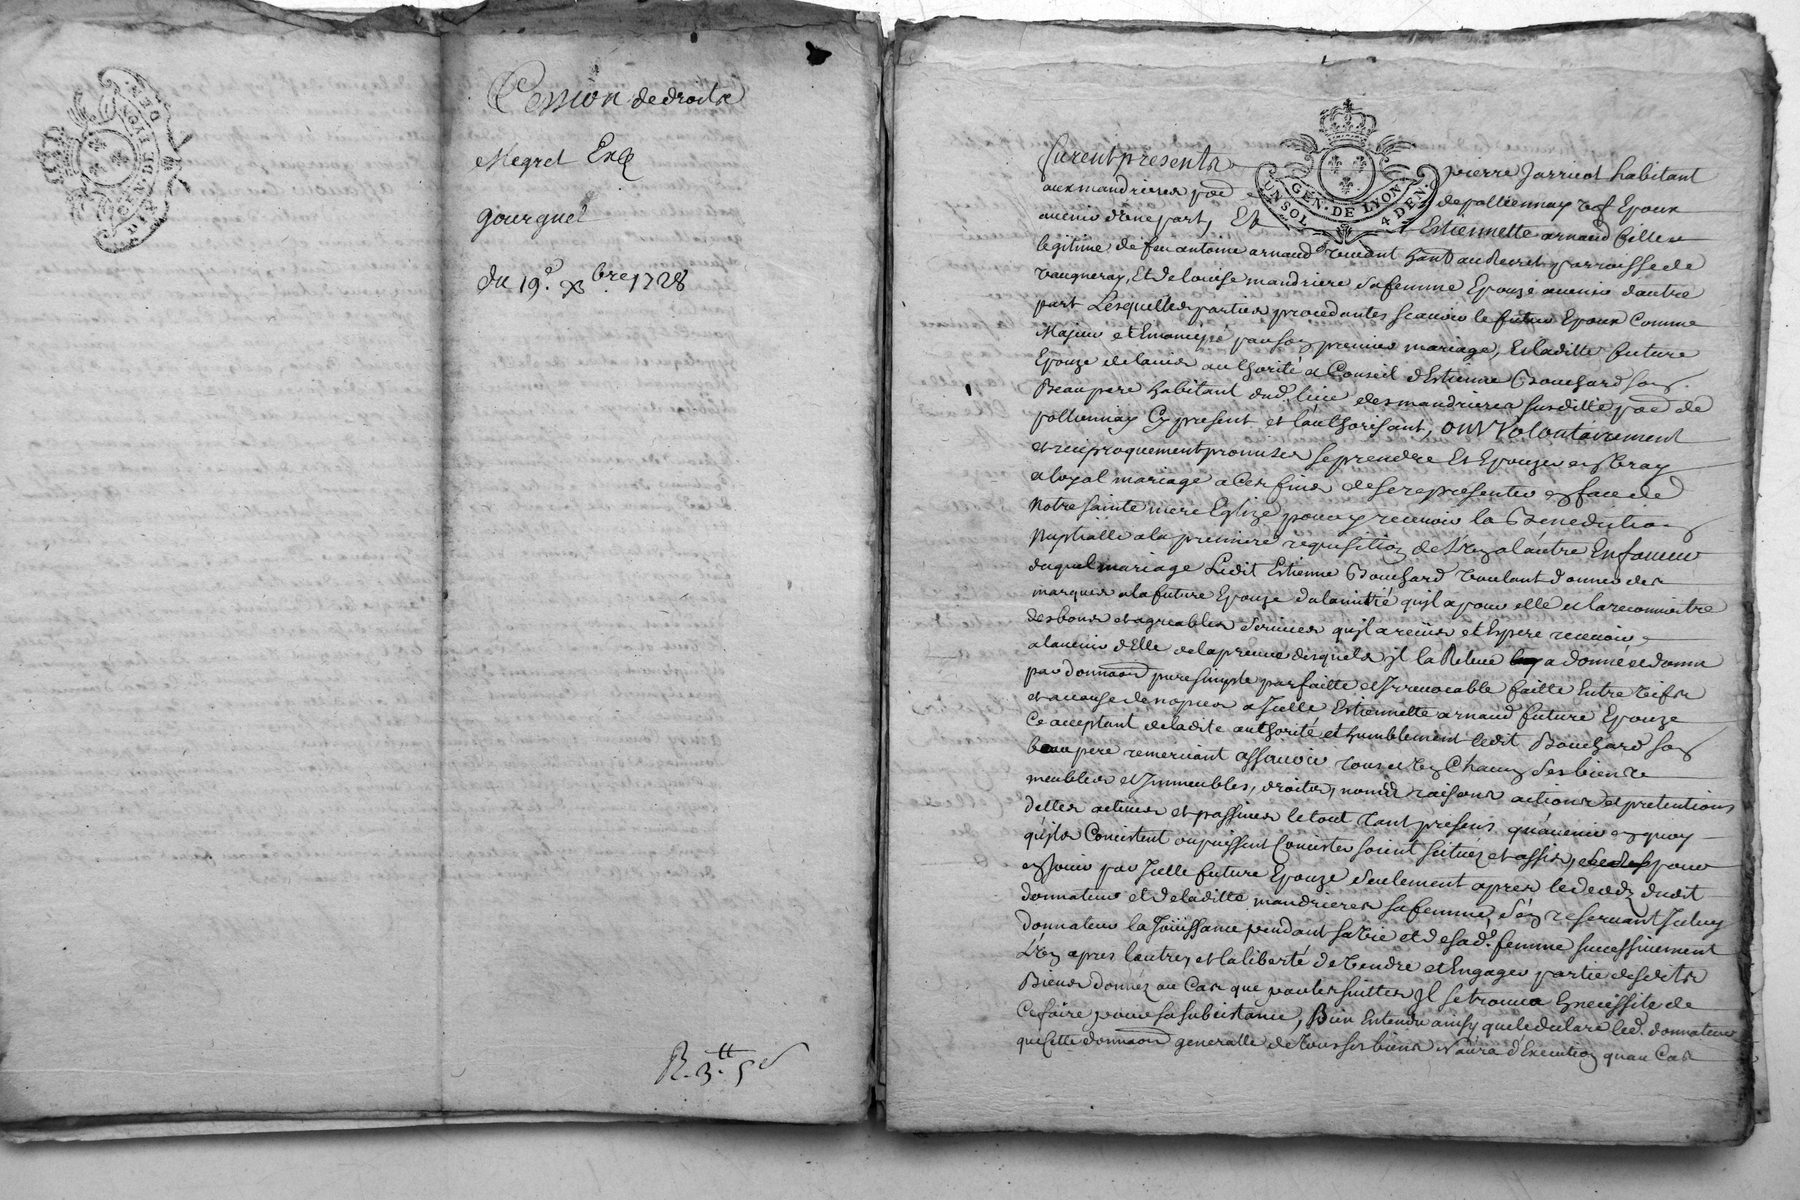 Cession de droits
Megret Et
gourguet
du 19e. xbre. 1728
R. 3tt. 5s
GEN. DE LYON
UN SOL 4 DEN.
furent presents pierre Jarricot habitant
aux mandrieres de pollionnay Epoux
avenir d'une part, Et Estiennette arnaud fille
legitime de feu antoine arnaud vivant parroisse de
vaugneray, Et de Louise mandriere sa femme Epouze avenir dautre
part Lesquelles parties procedantes scauoir le futur Epoux Comme
Majeur et Emancipé par son premier mariage, Et laditte future
Epouze de lavis authorité et Conseil d'Estienne Bouchard son
Beaupere habitant dud. lieu des mandrieres susditte de
pollionnay Cy present et lauthorisant, ont volontairement
et reciproquement promis se prendre Et Epouzer en vray
et loyal mariage a Ces fins de se representer en face de
Notre sainte mere Eglize pour y recevoir la Benediction
Nuptialle a la premiere requisition de l'un a l'autre En faveur
duquel mariage Ledit Estienne Bouchard voulant donner des
marques a la future Epouze de lamitié qu'il a pour elle et la reconnoitre
des bons et agreables services qu'il a reçus et Espere recevoir
a lavenir d'Elle de la preuve desquels il la Releve a donné et donne
par donnaon pure simple parfaitte et Irrevocable faitte Entre vifs
et a cause de nopces a Icelle Estiennette arnaud future Epouze
Ce acceptant de ladite authorité et humblement ledit Bouchard son
beaupere remerciant assavoir tous et un Chacun ses biens
meubles et Immeubles, droits, noms raisons actions et pretentions
dettes actives et passives le tout tant presens qu'avenir en quoy
qu'ils Consistent ou puissent Consister soient scituez et assis, pour
en Jouir par Icelle future Epouze seulement apres le deces dudit
donnateur et de laditte mandrieres sa femme, s'en reservant Iceluy
donnateur la Jouissance pendant sa vie et de sad. femme successivement
L'un apres lautre, et la liberté de vendre et Engager partie desdits
Biens donnez au Cas que par les suittes Il se trouva En necessité de
Ce faire pour sa subcistance, Bien Entendu ainsy que le declare led. donnateur
que Cette donnaon generalle de tous ses biens N'aura d'Execution qu'au Cas